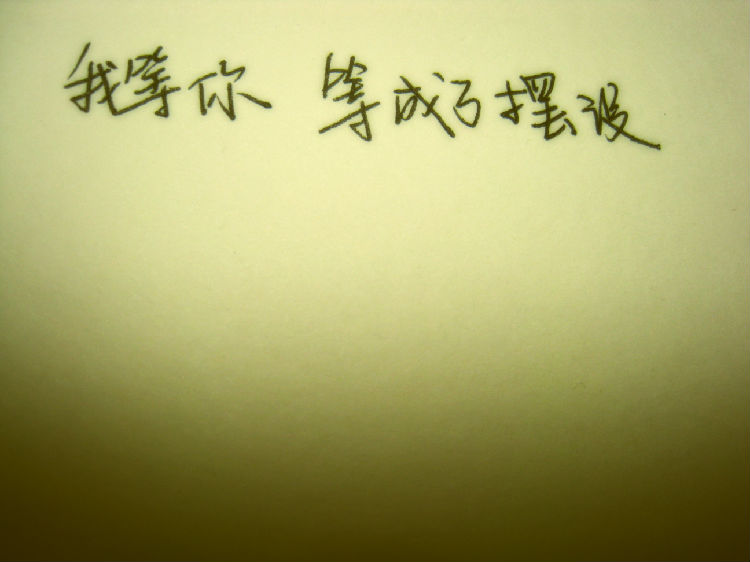 我等你 等成了摆设